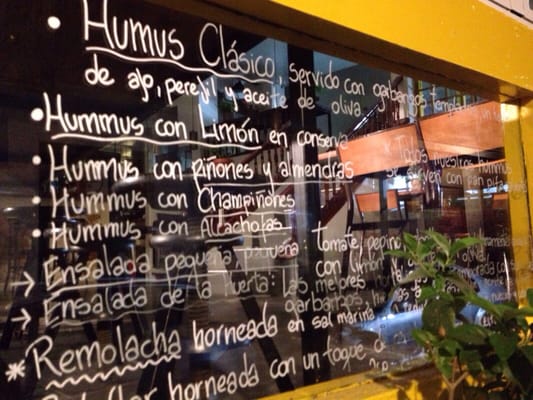 • Humus Clásico, servido con garbanzos templados
de ajo, perejil y aceite de oliva.
• Hummus con Limón en conserva
• Hummus con riñones y almendras
• Hummus con Champiñones
• Hummus con Alcachofas
* Todos nuestros hummus
se sirven con pan pita
→ Ensalada pequeña : tomate, pepino
con limón
→ Ensalada de la huerta: las mejores
garbanzos,
* Remolacha borneada en sal marina
borneada con un toque d